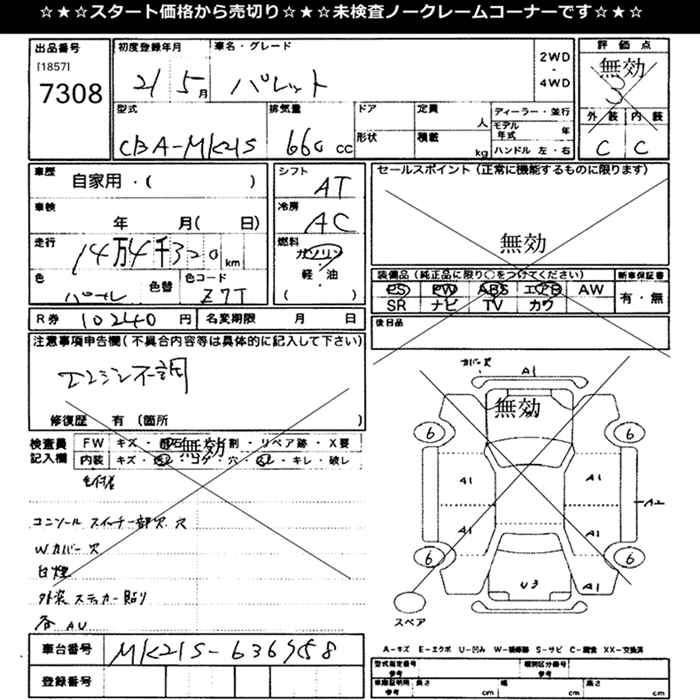 ☆★☆★スタート価格から売切り☆★☆★未検査ノークレームコーナーです☆★☆
出品番号
[1857]
7308
初度登録年月
21 5月
車名・グレード
パレット
2WD
・
4WD
評価点
無効
3
外装 内装
C C
型式
CBA-MK21S
排気量
660 cc
ドア
形状
定員
人
積載
kg
ディーラー・並行
モデル年式 年
ハンドル 左・右
車歴
自家用・( )
車検
年 月( 日)
走行
14万4千320km
色
パール
色替
色コード
Z7T
シフト
AT
冷房
AC
燃料
ガソリン
・
軽・油
( )
セールスポイント(正常に機能するものに限ります)
無効
装備品(純正品に限り○をつけてください)
PS PW ABS エアB AW
SR ナビ TV カワ
新車保証書
有・無
後日品
R券 10240 円
名変期限 月 日
注意事項申告欄(不具合内容等は具体的に記入して下さい)
エンジン不調
修復歴 有(箇所 )
検査員
記入欄
FW キズ・飛石 無効 割・リペア跡・X要
内装 キズ・汚レ・コゲ・穴・スレ・キレ・破レ
コンソール スイッチ一部欠 穴
Wカバー欠
白煙
外装 ステッカー貼り
各 AU
カバー欠
A1
無効
6 6
A1 A1
A2
A1 A1
6 6
U3 A1
スペア
A-キズ E-エクボ U-凹み W-補修跡 S-サビ C-腐食 XX-交換済
車台番号
MK21S-636958
登録番号
型式指定番号
参考
類別区分番号
参考
車庫証明用
参考
長さ cm
幅 cm
高さ cm